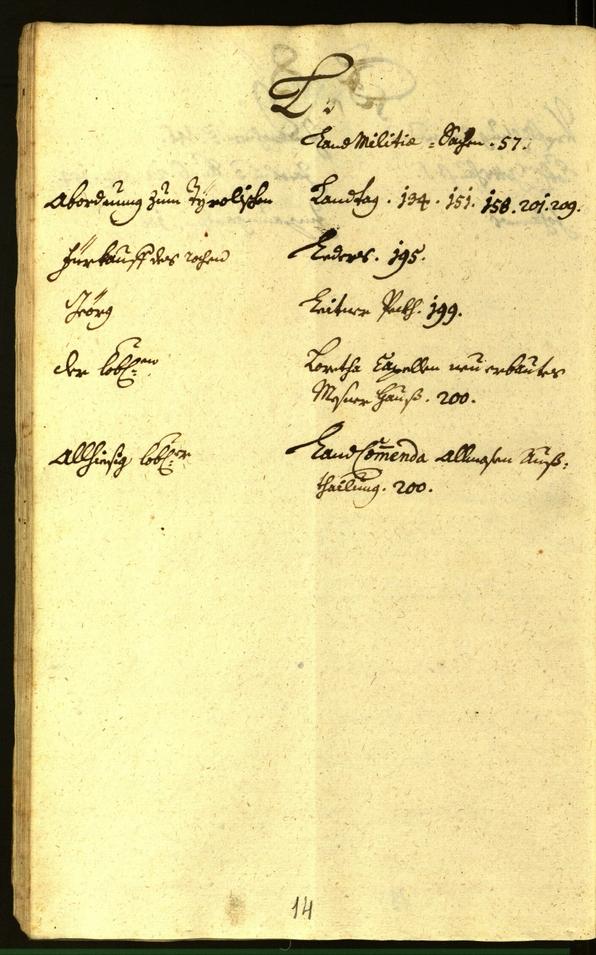 L.
Land Militia-Sachen. 57.
Abordnung zum Tyrolischen Landtag. 134. 151. 158. 201. 209.
Fürkauff des rochen Leders. 195.
Jörg Leitner 199.
der löbl:en Loretha Capellen neu erbautes
Mesner Hauß. 200.
Allhiesig löbl:er Land Com̅enda Allmosen Auß-
theillung. 200.
14